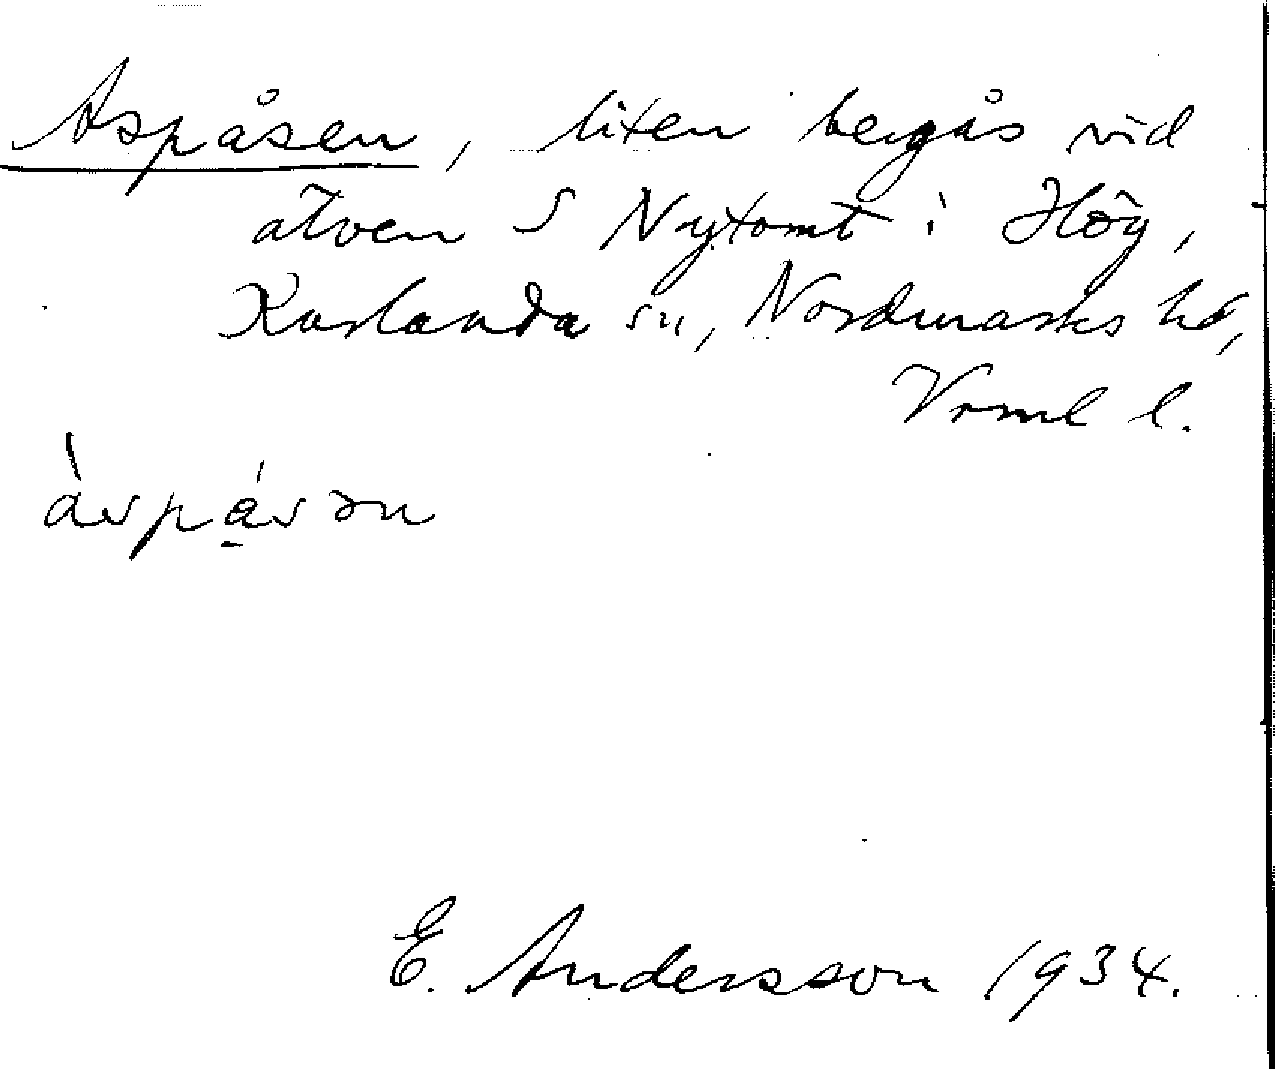 Aspåsen, liten bergås vid
älven S Nytomt i Hög,
Karlanda sn, Nordmarks hd,
Vrml l.
E. Andersson 1934.